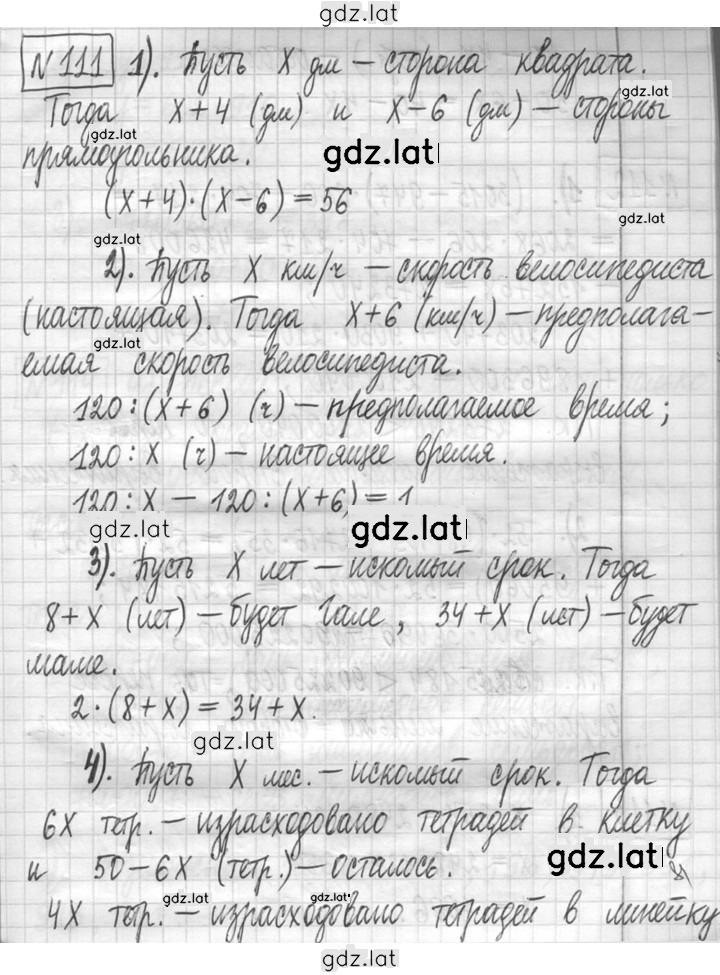 gdz.lat
N 111 1). Пусть X дм — сторона квадрата.
gdz.lat
Тогда X+4 (дм) и X−6 (дм) — стороны
gdz.lat
прямоугольника.
gdz.lat
(X+4)·(X−6)=56
gdz.lat
2). Пусть X км/ч — скорость велосипедиста
(настоящая). Тогда X+6 (км/ч) — предполага-
gdz.lat
емая скорость велосипедиста.
120:(X+6) (ч) — предполагаемое время;
120:X (ч) — настоящее время.
120:X − 120:(X+6)=1
gdz.lat gdz.lat
3). Пусть X лет — искомый срок. Тогда
8+X (лет) — будет Гале, 34+X (лет) — будет
маме.
2·(8+X)=34+X.
gdz.lat
4). Пусть X мес. — искомый срок. Тогда
6X тетр. — израсходовано тетрадей в клетку
и 50−6X (тетр.) — осталось.
gdz.lat
gdz.lat gdz.lat
4X тетр. — израсходовано тетрадей в линейку
gdz.lat